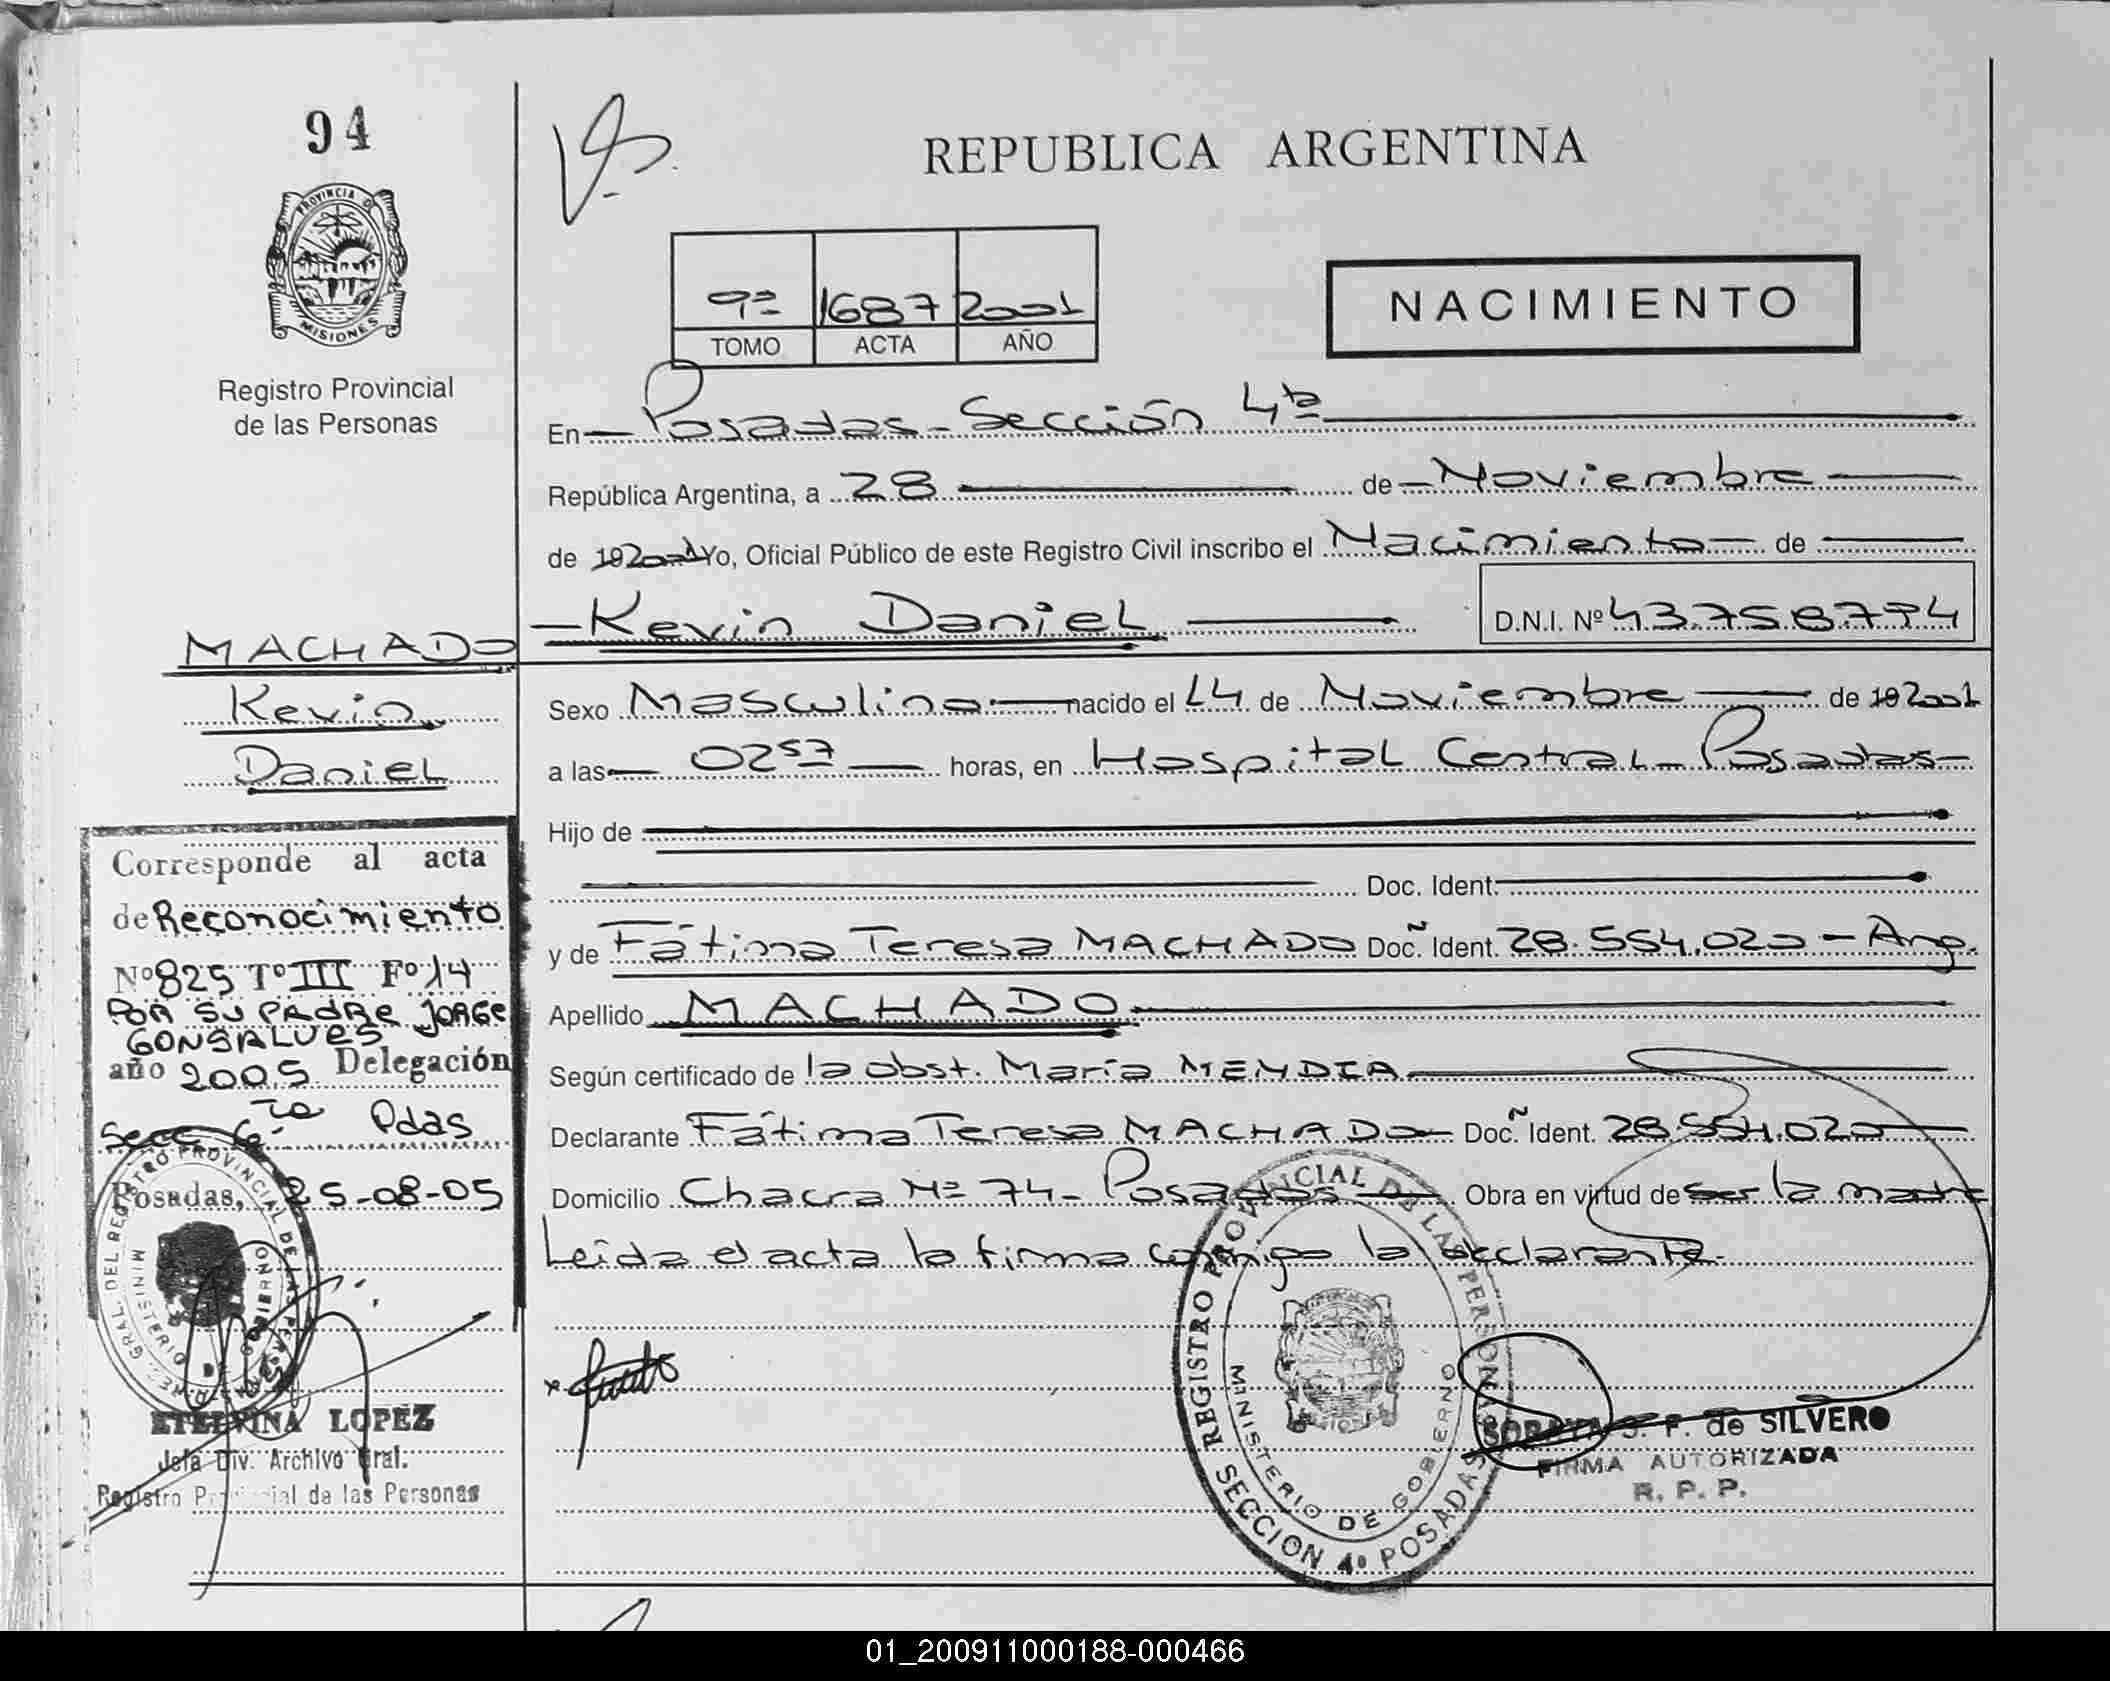 94
PROVINCIA D
MISIONES
Registro Provincial
de las Personas
REPUBLICA ARGENTINA
9º 1687 2001
TOMO ACTA AÑO
NACIMIENTO
En Posadas - Sección 4ta
República Argentina, a 28 de Noviembre
de 19 2001 Yo, Oficial Público de este Registro Civil inscribo el Nacimiento de
Kevin Daniel D.N.I. Nº 43.758.774
MACHADO
Kevin
Daniel
Sexo Masculino nacido el 14 de Noviembre de 19 2001
a las 02 57 horas, en Hospital Central - Posadas -
Hijo de
Doc. Ident.
y de Fátima Teresa MACHADO Doc. Ñ Ident. 28.554.020 - Arg.
Apellido MACHADO
Según certificado de la obst. María MENDIA
Declarante Fátima Teresa MACHADO Doc. Ñ Ident. 28.554.020
Domicilio Chacra Nº 74 - Posadas Obra en virtud de ser la madre
Leída el acta la firma conmigo la declarante.
Corresponde al acta
de Reconocimiento
Nº 825 Tº III Fº 14
POR SU PADRE JORGE
GONSALVES
año 2005 Delegación
Secc 6ta Pdas
Posadas, 25-08-05
ETELVINA LOPEZ
Jefa Div. Archivo Gral.
Registro Provincial de las Personas
REGISTRO PROVINCIAL DE LAS PERSONAS
MINISTERIO DE GOBIERNO
SECCION 4º POSADAS
SORAYA S. F. de SILVERO
FIRMA AUTORIZADA
R. P. P.
01_200911000188-000466